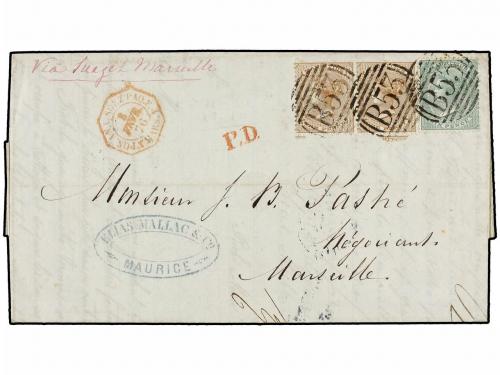 Via Suez & Marseille
B53
B53
B53
P.D.
Monsieur J. B. Pashé
Négociant
Marseille.
ELIAS MALLAC & Co
MAURICE